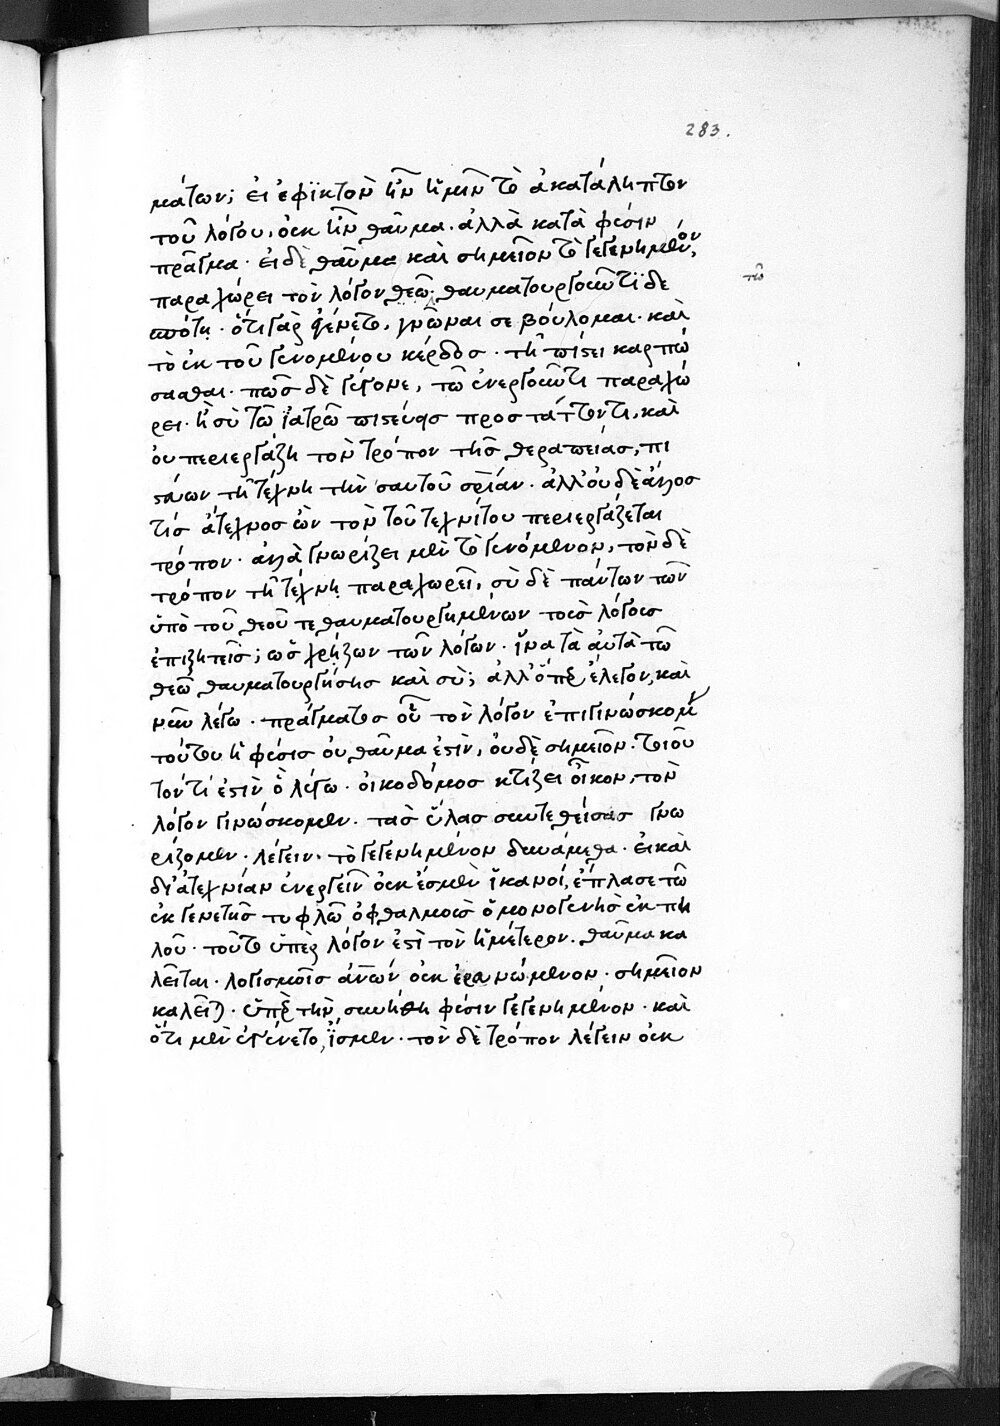 283.
μάτων; εἰ ἐφϊκτὸν ἦν ἡμῖν τὸ ἀκατάληπτον
τοῦ λόγου, οὐκ ἦν θαῦμα. ἀλλὰ κατὰ φύσιν
πρᾶγμα. εἰ δὲ θαῦμα καὶ σημεῖον τὸ γεγενημένον,
παραχώρει τὸν λόγον θεῶ θαυματουργοῦντι δε
τῶ
ὅτι γὰρ ἐγένετο, γνῶναι σε βούλομαι. καὶ
τὸ ἐκ τοῦ γενομένου κέρδος. τῆ πίστει καρπώ
σασθαι. πῶς δὲ γέγονε, τῶ ἐνεργοῦντι παραχώ
ρει. ἢ σὺ τῶ ἰατρῶ πιστεύεις προστάττοντι, καὶ
οὐ περιεργάζη τὸν τρόπον τῆς θεραπείας, πι
στεύων τῆ τέχνη τὴν σαυτοῦ σρίαν. ἀλλ' οὐδὲ ἄλλος
τίς ἄτεχνος ὢν τὸν τοῦ τεχνίτου περιεργάζεται
τρόπον. ἀλλὰ γνωρίζει μὲν τὸ γενόμενον, τὸν δὲ
τρόπον τῆ τέχνη παραχωρεῖ, σὺ δὲ πάντων τῶν
ὑπὸ τοῦ θεοῦ τεθαυματουργημένων τοὺς λόγους
ἐπιζητεῖς; ὡς χρήζων τῶν λόγων. ἵνα τὰ αὐτὰ τῶ
θεῶ θαυματουργήσης καὶ σὺ; ἀλλ' ὅπερ ἔλεγον, καὶ
νῦν λέγω. πράγματος οὗ τὸν λόγον ἐπιγινώσκομεν
τούτου ἡ φύσις οὐ θαῦμα ἐστὶν, οὐδὲ σημεῖον. τοιοῦ
τον τί ἐστὶν ὃ λέγω. οἰκοδόμος κτίζει οἶκον, τὸν
λόγον γινώσκομεν. τὰς ὕλας συντεθείσας γνω
ρίζομεν. λέγειν. τὸ γεγενημένον δυνάμεθα. εἰ καὶ
δι' ἀτεχνίαν ἐνεργεῖν οὐκ ἐσμὲν ἱκανοί, ἔπλασε τῶ
ἐκ γενετῆς τυφλῶ ὀφθαλμοὺς ὁ μονογενὴς ἐκ πη
λοῦ. τοῦτο ὑπὲρ λόγον ἐστὶ τὸν ἡμέτερον. θαῦμα κα
λεῖται. λογισμοῖς ἀνων οὐκ ἐρανώμενον. σημεῖον
καλεῖται. ὑπὲρ τὴν συνήθη φύσιν γεγενημένον. καὶ
ὅτι μὲν ἐγένετο, ἴσμεν. τὸν δὲ τρόπον λέγειν οὐκ